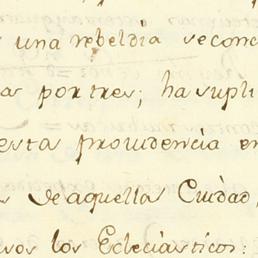 una rebeldia se conc
as por tres; ha supli
esta providencia en
s de aquella Ciudad,
vos los Ecleciasticos: